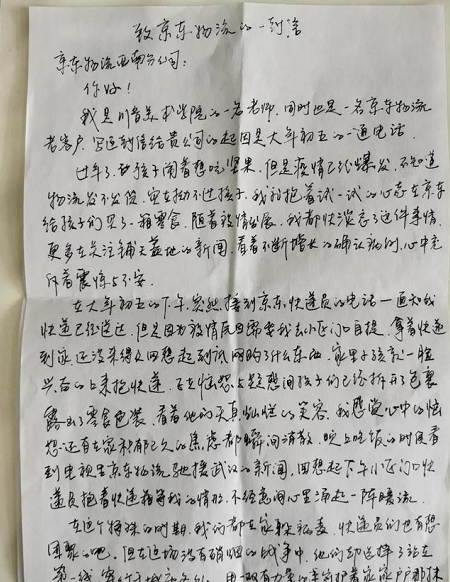 致京东物流的一封信
京东物流西南分公司：
你好！
我是川音美术学院的一名老师，同时也是一名京东物流
老客户，写这封信给贵公司的起因是大年初五的一通电话。
过年了，孩子闹着想吃坚果，但是疫情已经爆发，不知道
物流发不发货，实在拗不过孩子，我就抱着试一试的心态在京东
给孩子们买了一箱零食，随着疫情发展，我都快淡忘了这件事情，
更多在关注铺天盖地的新闻，看着不断增长的确诊病例，心中充
满着震惊与不安。
在大年初五的下午，突然接到京东快递员的电话，通知我
快递已经送达，但是因为疫情原因需要我去小区门口自提，拿着快递
到家，还没来得及回想起到底网购了什么东西，家里小孩就一脸
兴奋的上来抱快递，正在恍惚之间孩子们已经拆开了包裹
露出了零食包装，看着他们天真灿烂的笑容，我感觉心中的恍
惚还有在家积郁已久的焦虑都瞬间消散，晚上吃饭的时候看
到电视里京东物流驰援武汉的新闻，回想起下午小区门口快
递员抱着快递等我的情形，不经意间心里涌起一阵暖流。
在这个特殊的时期，我们都在家躲病毒，快递员们也有想
团聚的吧，但在这场没有硝烟的战争中，他们却选择了站在
第一线